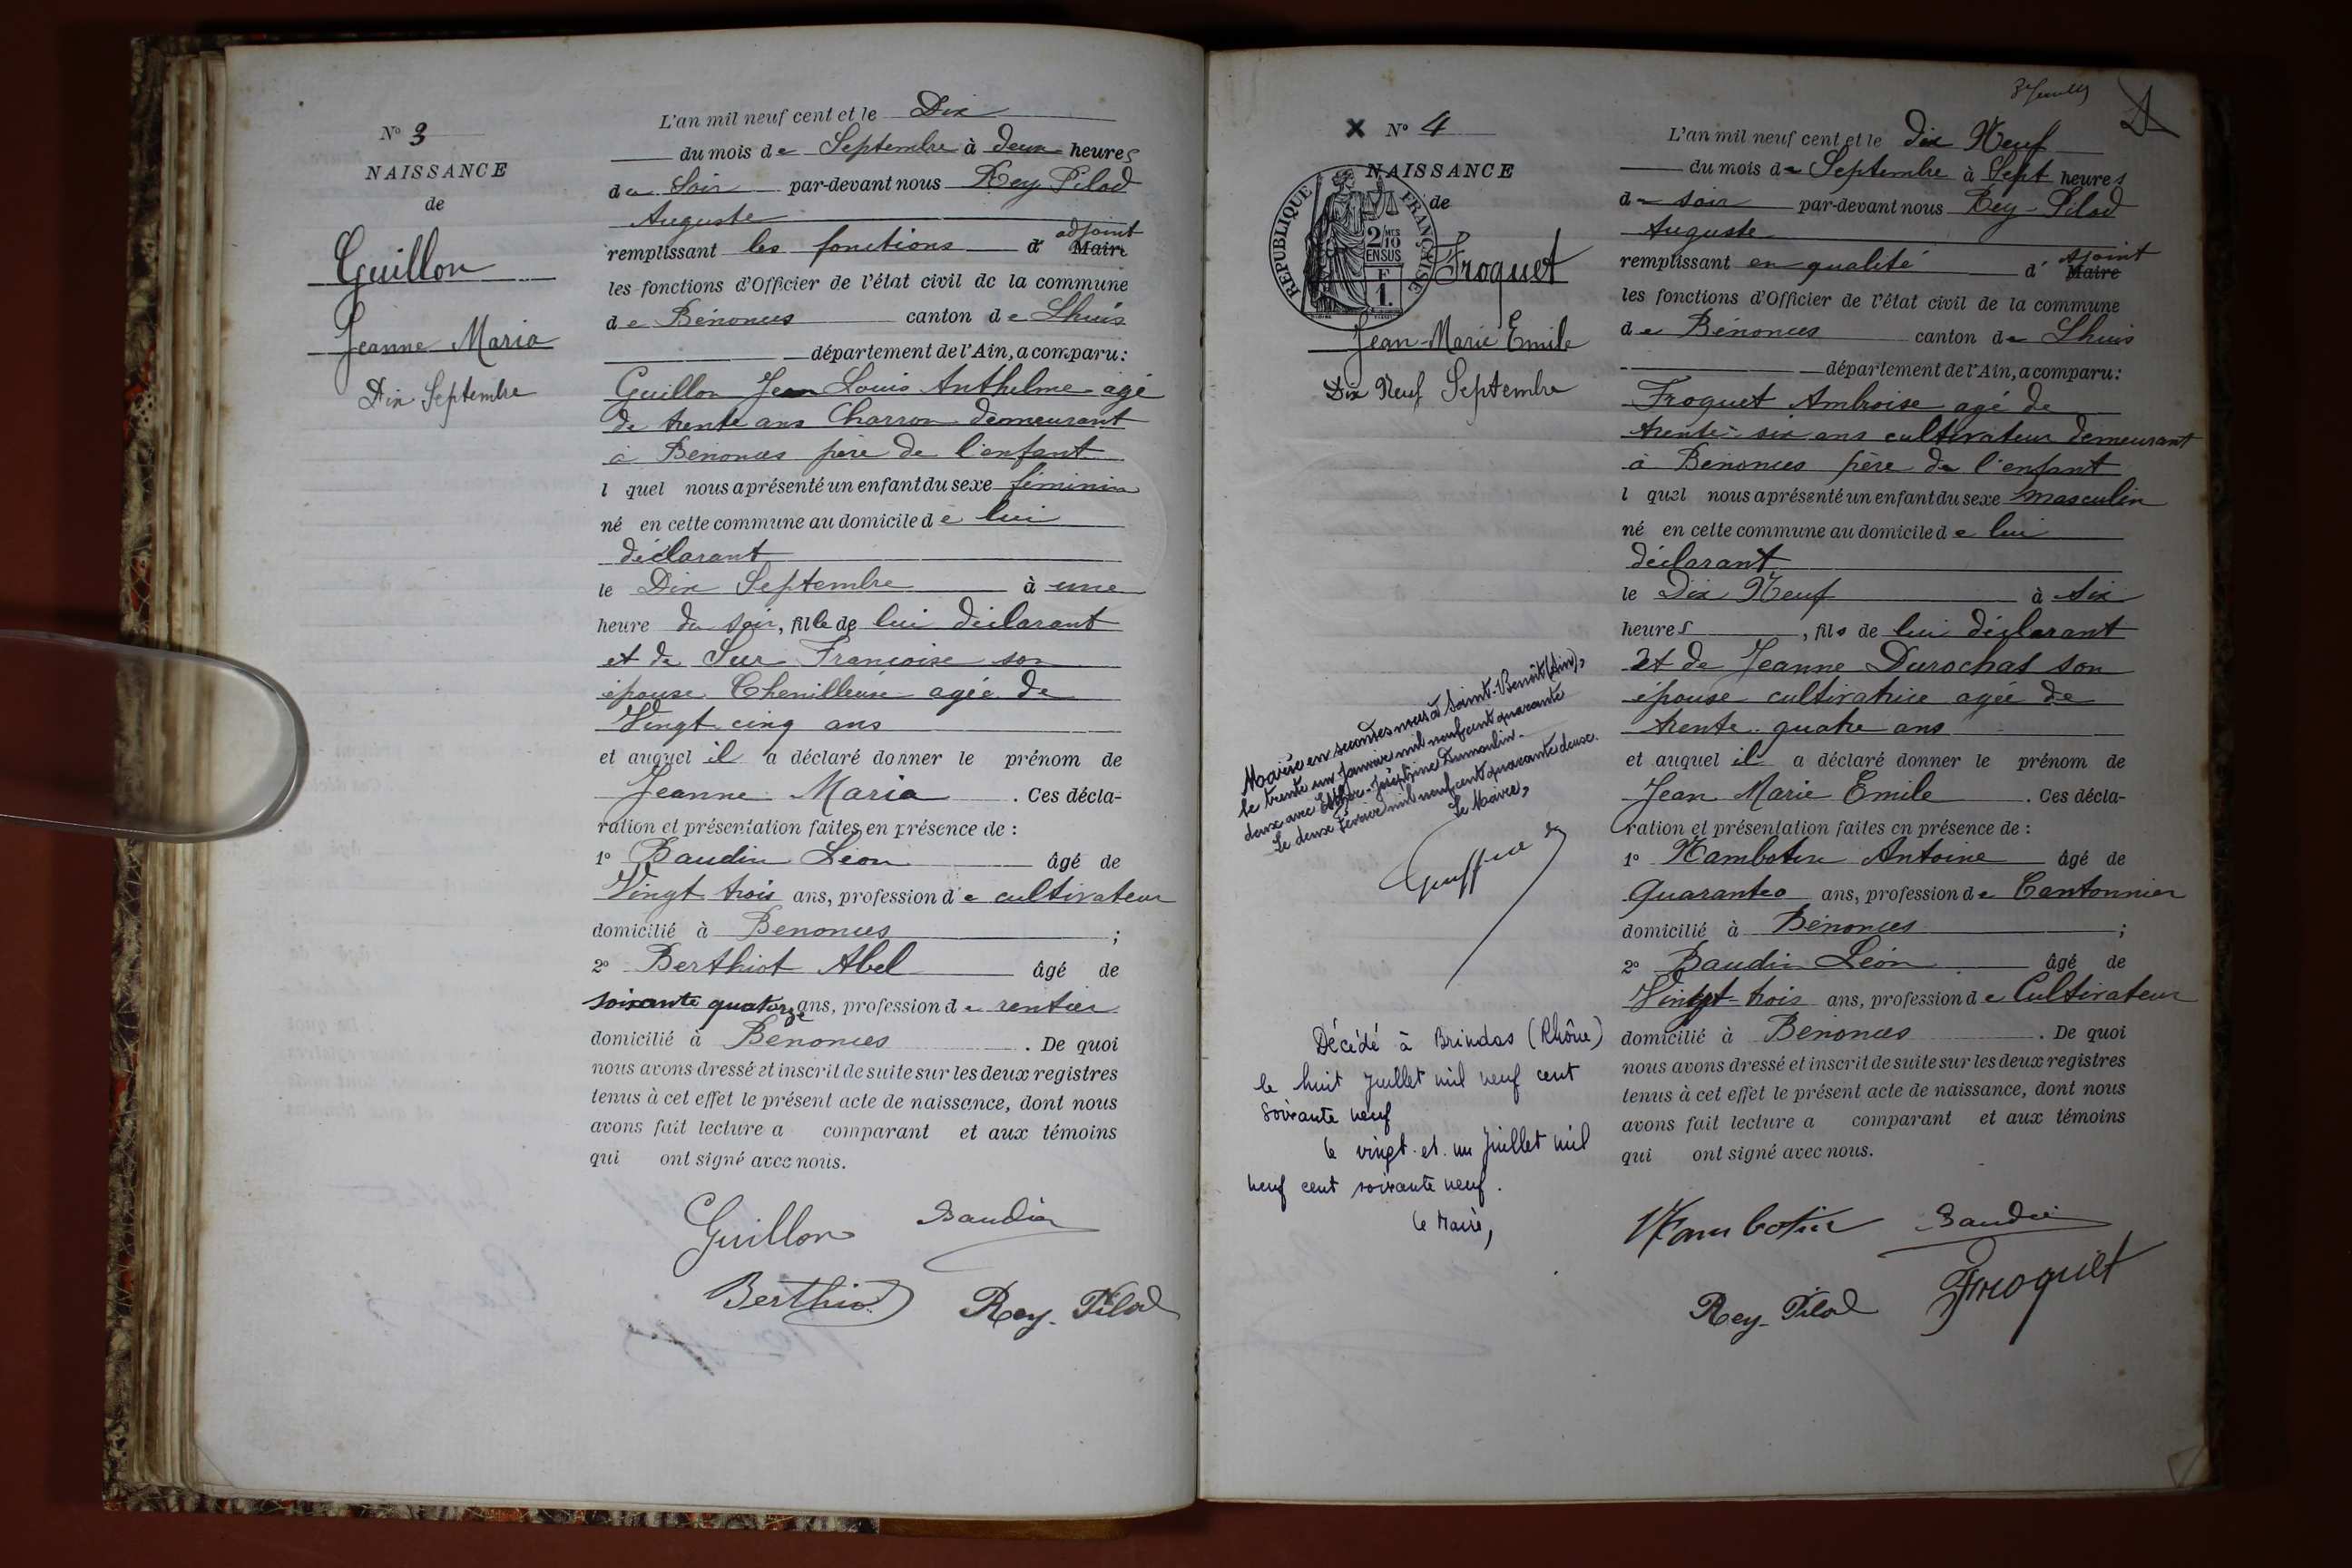 N° 3
NAISSANCE
de
Guillon
Jeanne Maria
Dix Septembre
L'an mil neuf cent et le Dix
du mois de Septembre à deux heures
du Soir par-devant nous Rey Pilod
Auguste
remplissant les fonctions d' adjoint Maire
les fonctions d'Officier de l'état civil de la commune
de Bénonces canton de Lhuis
département de l'Ain, a comparu:
Guillon Jean Louis Anthelme agé
de trente ans Charron demeurant
à Bénonces père de l'enfant
l quel nous a présenté un enfant du sexe féminin
né en cette commune au domicile de lui
déclarant
le Dix Septembre à une
heure du soir, fille de lui déclarant
et de Sur Francoise son
épouse Chenilleuse agée de
Vingt cinq ans
et auquel il a déclaré donner le prénom de
Jeanne Maria. Ces décla-
ration et présentation faites en présence de :
1° Baudin Léon âgé de
Vingt trois ans, profession de cultivateur
domicilié à Bénonces ;
2° Berthiot Abel âgé de
soixante quatorze ans, profession de rentier
domicilié à Bénonces. De quoi
nous avons dressé et inscrit de suite sur les deux registres
tenus à cet effet le présent acte de naissance, dont nous
avons fait lecture a comparant et aux témoins
qui ont signé avec nous.
Guillon Baudin
Berthiot Rey-Pilod
X N° 4
NAISSANCE
de
REPUBLIQUE FRANÇAISE
2/10 MES
EN SUS
F
1.
Froquet
Jean-Marie Emile
Dix Neuf Septembre
Marié en secondes noces à Saint-Benoît (Ain),
le trente un Janvier mil neuf cent quarante
deux avec Joséphine Dumoulin.
Le deux Février mil neuf cent quarante deux.
Le Maire,
Décédé à Brindas (Rhône)
le huit Juillet mil neuf cent
soixante neuf
le vingt-et-un Juillet mil
neuf cent soixante neuf.
le Maire,
L'an mil neuf cent et le dix Neuf
du mois de Septembre à Sept heures
du soir par-devant nous Rey-Pilod
Auguste
remplissant en qualité d' ajoint Maire
les fonctions d'Officier de l'état civil de la commune
de Bénonces canton de Lhuis
département de l'Ain, a comparu:
Froquet Ambroise agé de
trente-six ans cultivateur demeurant
à Bénonces père de l'enfant
l quel nous a présenté un enfant du sexe masculin
né en cette commune au domicile de lui
déclarant
le Dix Neuf à six
heures, fils de lui déclarant
et de Jeanne Durochat son
épouse cultivatrice agée de
trente quatre ans
et auquel il a déclaré donner le prénom de
Jean Marie Emile. Ces décla-
ration et présentation faites en présence de :
1° Antoine âgé de
Quarante ans, profession de Cantonnier
domicilié à Bénonces ;
2° Baudin Léon âgé de
Vingt-trois ans, profession de Cultivateur
domicilié à Bénonces. De quoi
nous avons dressé et inscrit de suite sur les deux registres
tenus à cet effet le présent acte de naissance, dont nous
avons fait lecture a comparant et aux témoins
qui ont signé avec nous.
Baudin
Rey-Pilod Froquet